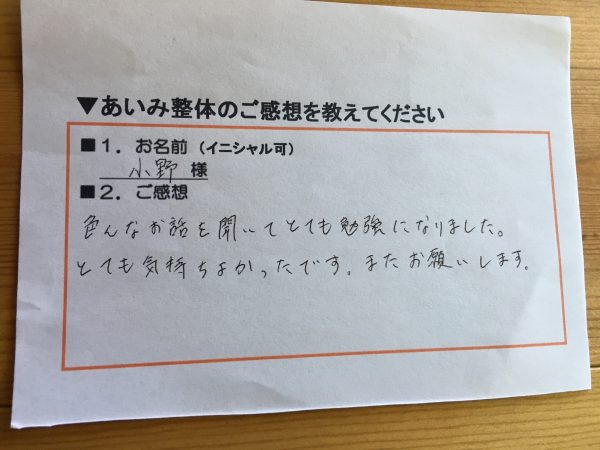 ▼あいみ整体のご感想を教えてください
■1．お名前（イニシャル可）
小野 様
■2．ご感想
色んなお話を聞いてとても勉強になりました。
とても気持ちよかったです。またお願いします。